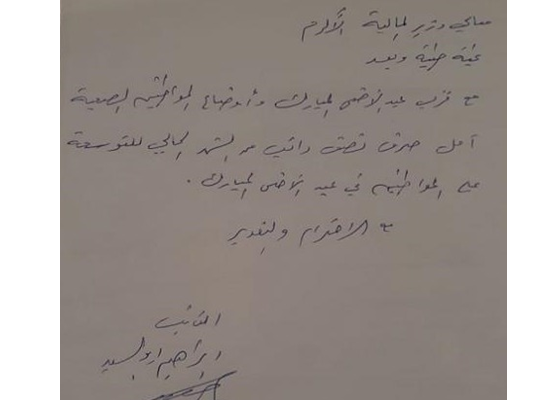 معالي وزير المالية الأكرم
تحية طيبة وبعد
مع قرب عيد الاضحى المبارك وأوضاع المواطنين الصعبة
آمل صرف نصف راتب من الشهر الحالي للتوسعة
على المواطنين في عيد الاضحى المبارك .
مع الاحترام والتقدير
النائب
ابراهيم ابو السيد